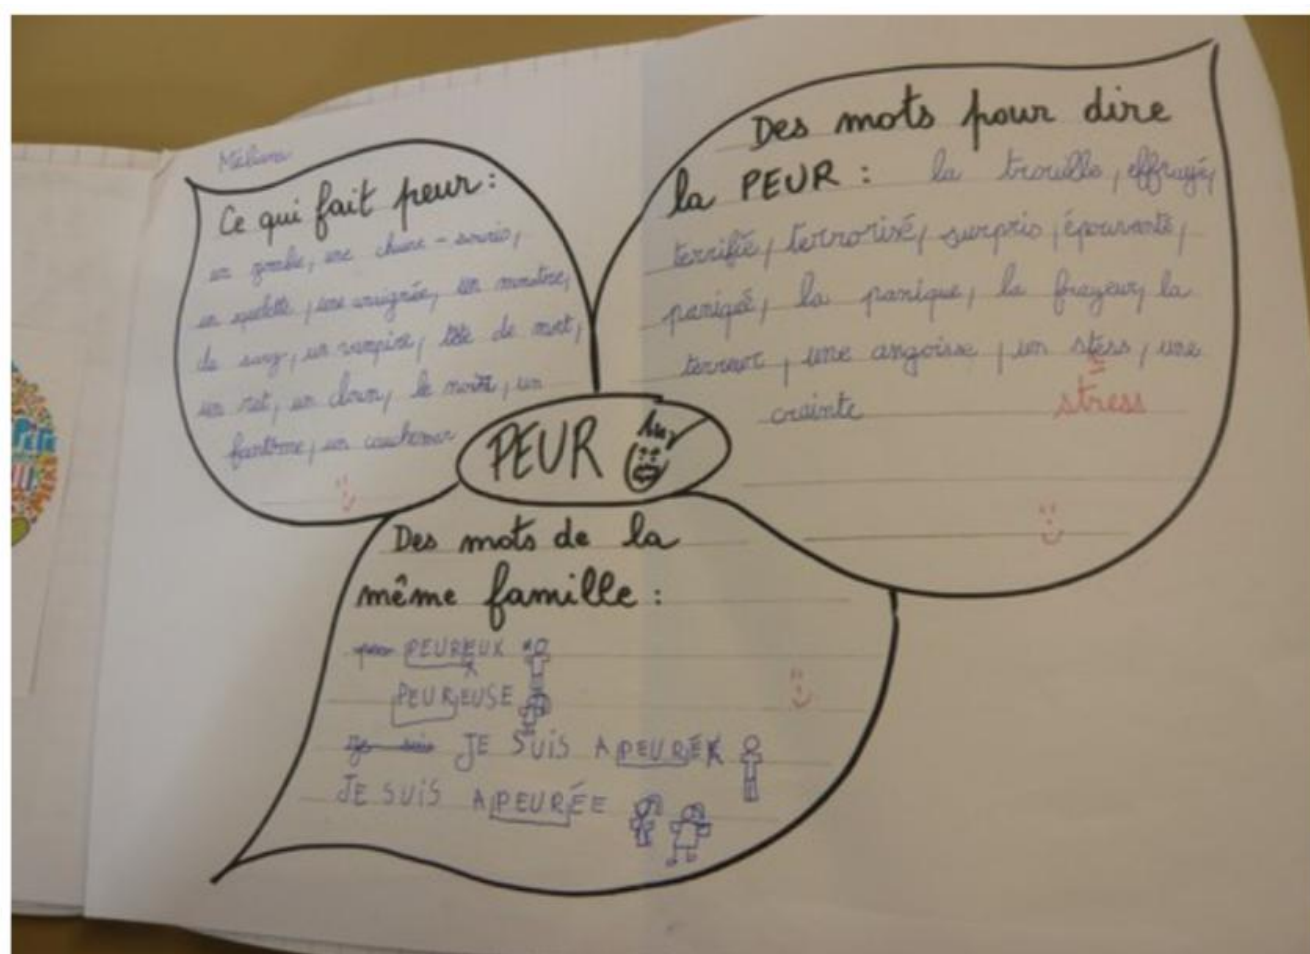 Ce qui fait peur :
un zombie, une chauve-souris,
un squelette, une araignée, un monstre,
du sang, un vampire, tête de mort,
un rat, un clown, le noir, un
fantôme, un cauchemar
Des mots pour dire
la PEUR : la trouille, effrayé,
terrifié, terrorisé, surpris, épouvanté,
paniqué, la panique, la frayeur, la
terreur, une angoisse, un stess, une
crainte stress
PEUR
Des mots de la
même famille :
PEUREUX
PEUREUSE
JE SUIS APEURÉ
JE SUIS APEURÉE